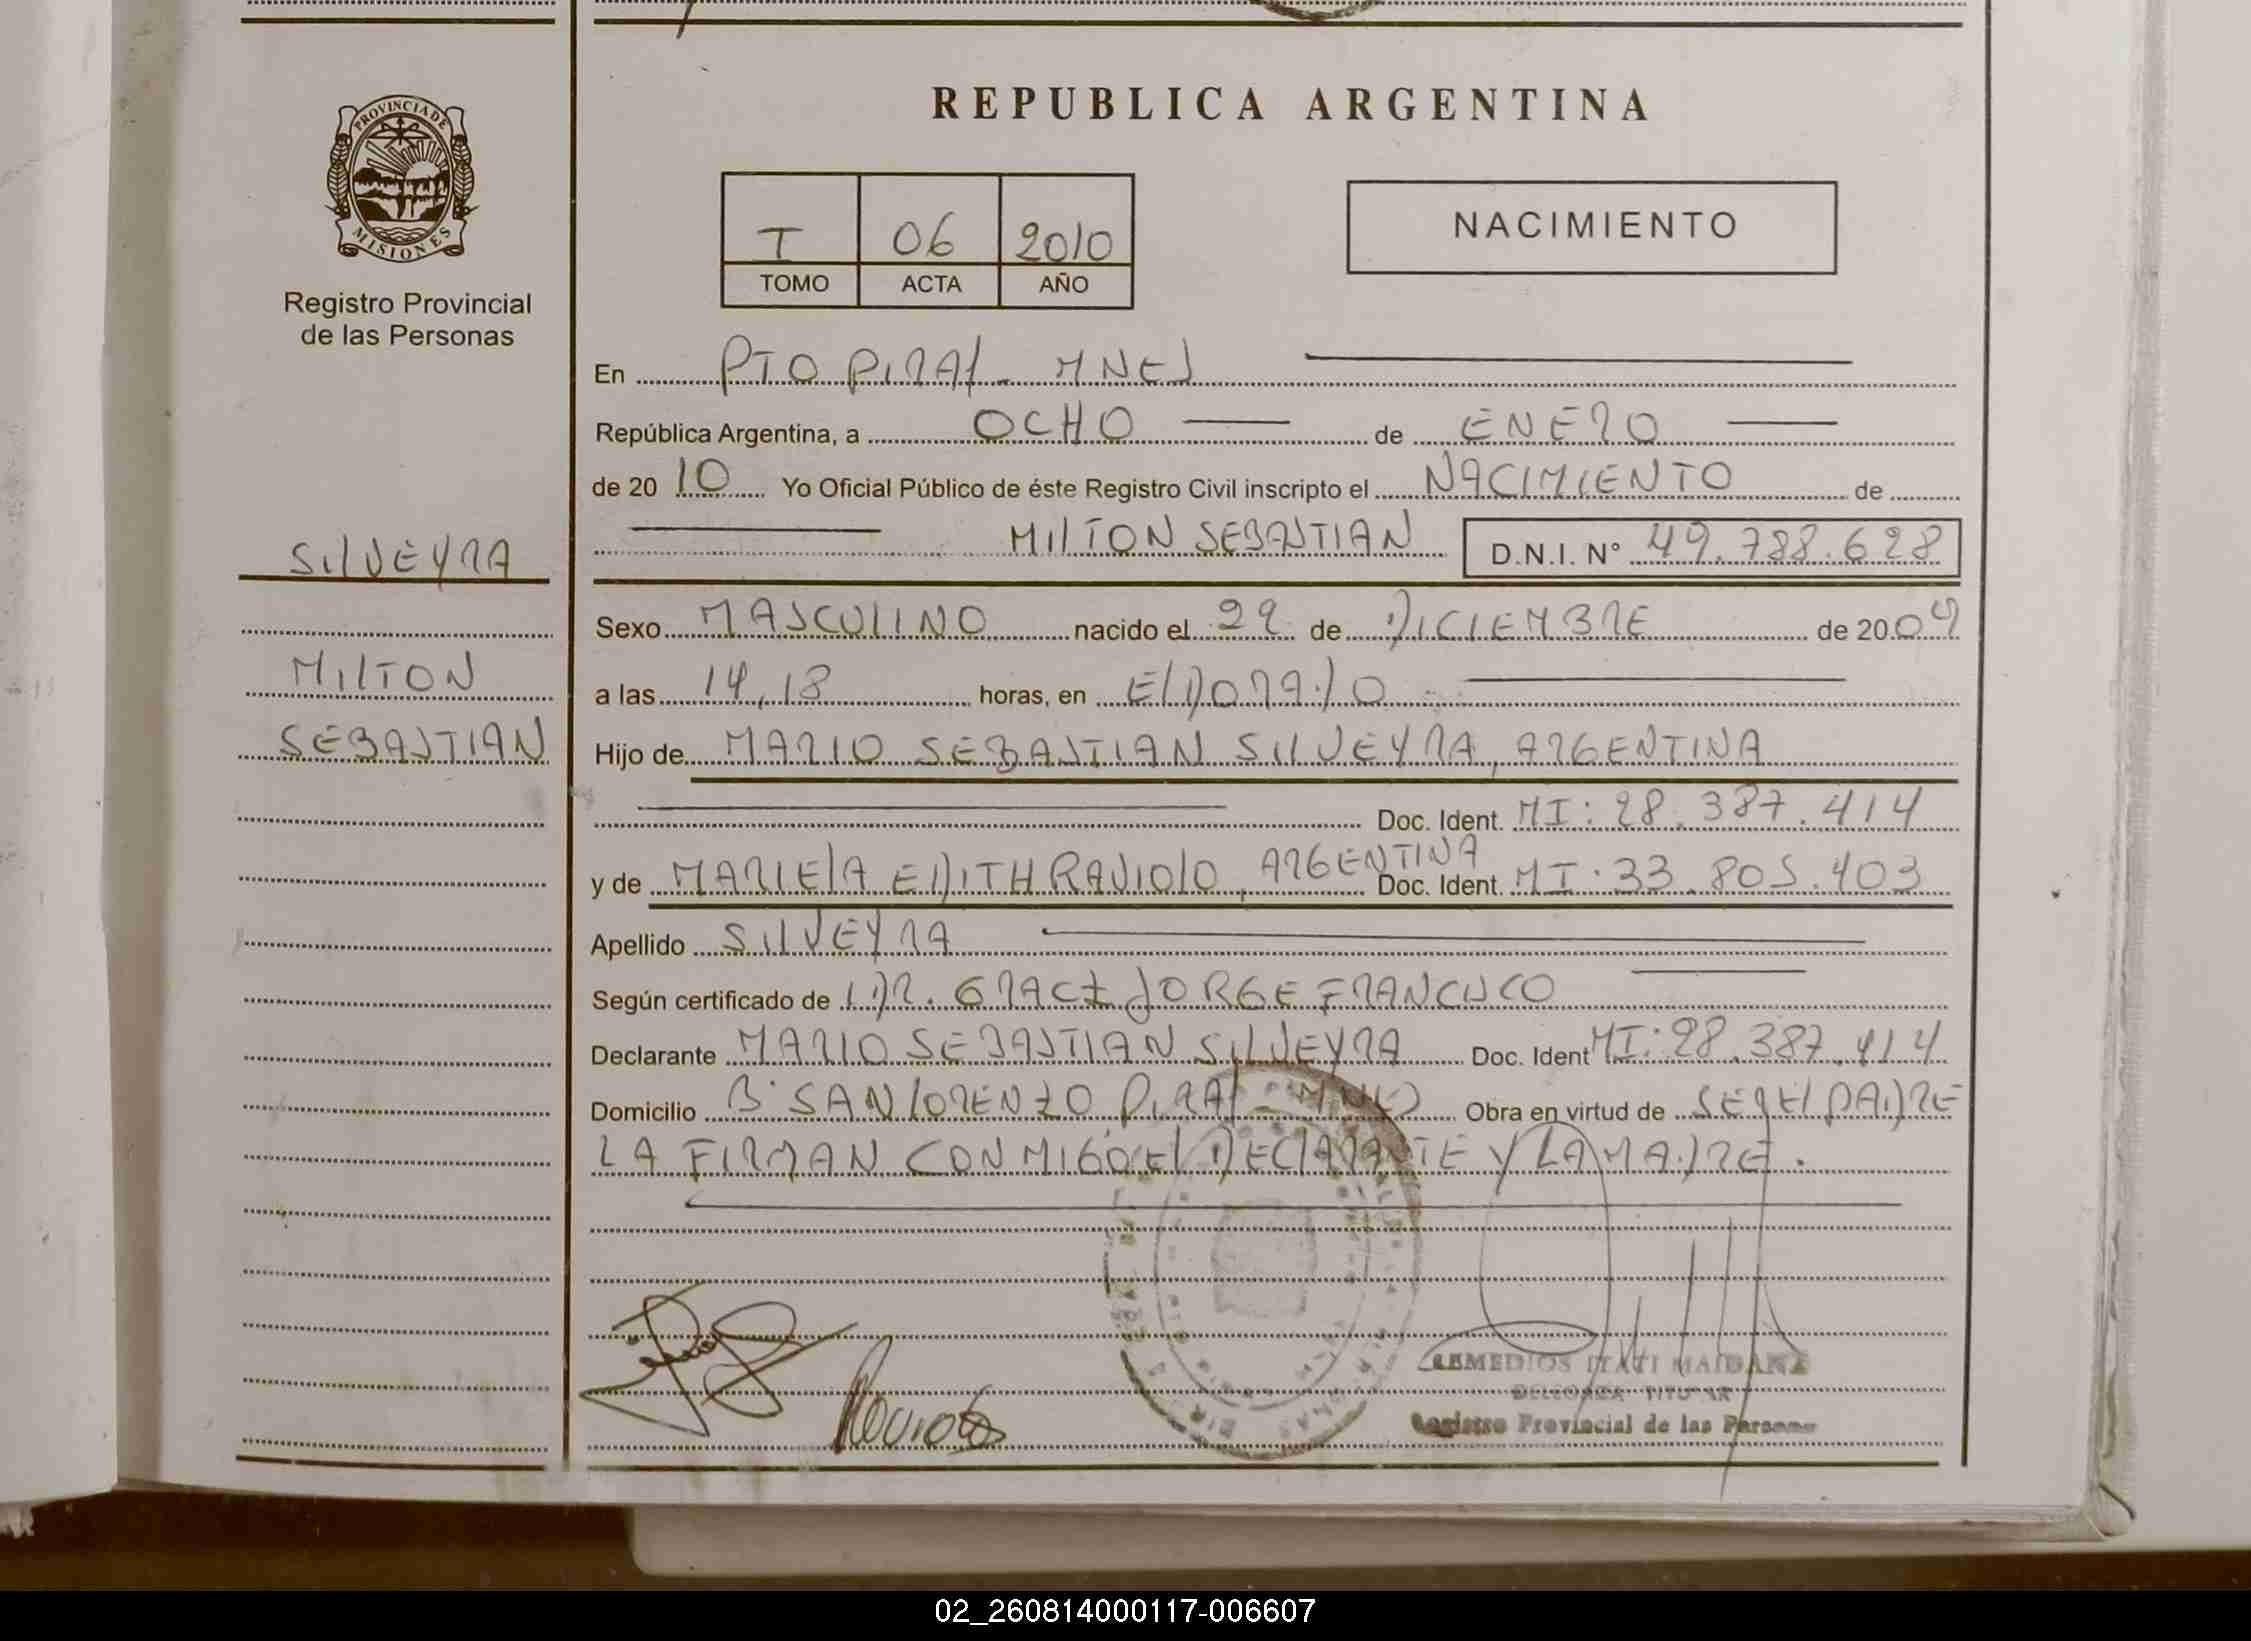 REPUBLICA ARGENTINA
PROVINCIA DE
MISIONES
Registro Provincial
de las Personas
I 06 2010
TOMO ACTA AÑO
NACIMIENTO
En PTO PIRAI - MNES
República Argentina, a OCHO de ENERO
de 20 10 Yo Oficial Público de éste Registro Civil inscripto el NACIMIENTO de
MILTON SEBASTIAN D.N.I. N° 49.788.628
SILVEYRA
MILTON
SEBASTIAN
Sexo MASCULINO nacido el 29 de DICIEMBRE de 20 09
a las 14,18 horas, en ELDORADO
Hijo de MARIO SEBASTIAN SILVEYRA, ARGENTINA
Doc. Ident. MI: 28.387.414
y de MARIELA EDITH RAVIOLO, ARGENTINA Doc. Ident. MI: 33.805.403
Apellido SILVEYRA
Según certificado de DR. JORGE FRANCISCO
Declarante MARIO SEBASTIAN SILVEYRA Doc. Ident MI: 28.387.414
Domicilio B° SAN LORENZO PIRAI - MNES Obra en virtud de SER EL PADRE
LA FIRMAN CONMIGO EL DECLARANTE Y LA MADRE.
Raviolo
REMEDIOS ITATI MAIDANA
DELEGADA TITULAR
Registro Provincial de las Personas
02_260814000117-006607